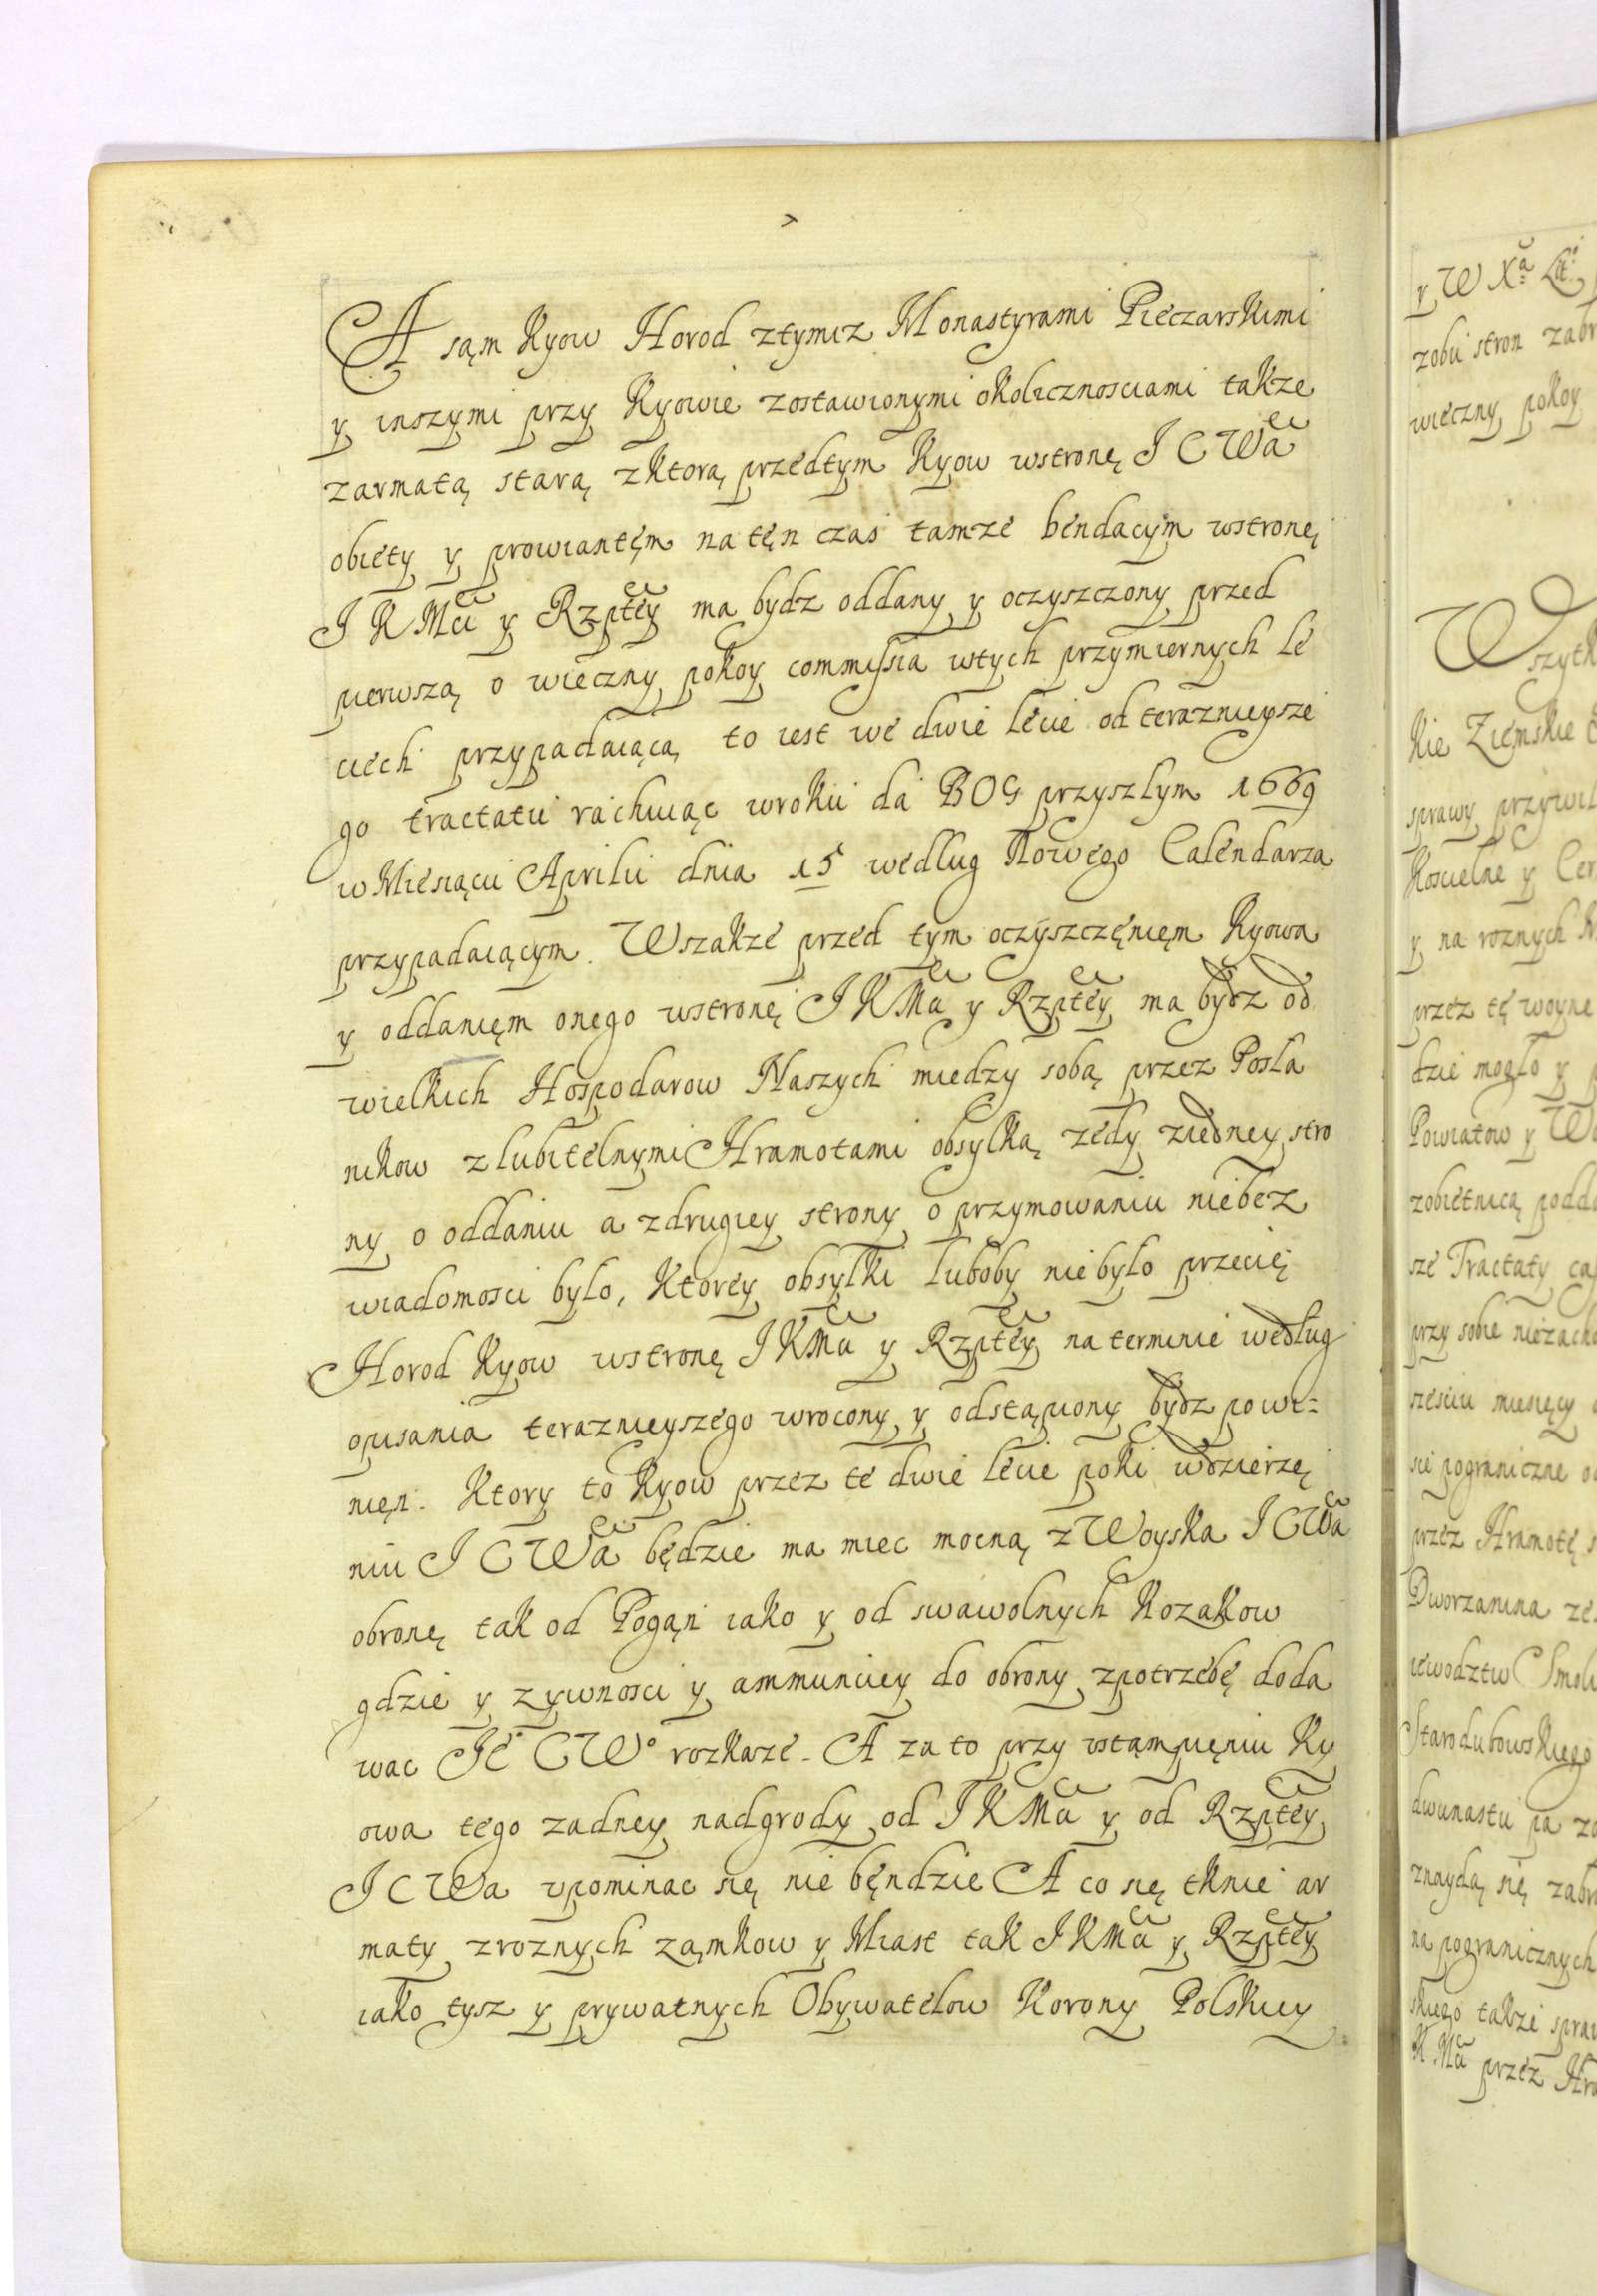 A sąm Kyow Horod ztymiz Monastyrami Pieczarskimi
y inszymi przy Kyowie zostawionymi okolicznosciami takze
zarmatą starą zktorą przedtym Kyow wstronę J C Wa
obiety y prowiantęm na tęn czas tamze bendacym wstronę
J K Ma y Rzptey ma bydz oddany y oczyszczony przed
pierwszą o wieczny pokoy commissia wtych przymiernych le
ciech przypadaiącą to iest we dwie lecie od teraznieysze
go tractatu rachuiąc wroku da BOG przyszlym 1669
w Miesiącu Aprilu dnia 15 wedlug Nowego Calendarza
przypadaiącym. Wszakze przed tym oczyszczęnięm Kyowa
y oddanięm onego wstronę J K Ma y Rzptey ma bydz od
wielkich Hospodarow Naszych miedzy sobą przez Posla
nikow z lubitelnymi Hramotami obsylką zedy ziedney stro
ny o oddaniu a zdrugiey strony o przymowaniu niebez
wiadomosci bylo, Ktorey obsylki luboby niebylo przecię
Horod Kyow wstronę J K Ma y Rzptey na terminie według
opisania teraznieyszego wrocony y odstąpiony bydz powi=
nięn. Ktory to Kyow przez te dwie lecie poki wdzierzę
niu J C Wa będzie ma miec mocną z Woyska J C Wa
obronę tak od Pogąn iako y od swawolnych Kozakow
gdzie y zywnosci y ammuniciey do obrony zpotrzebę doda
wac Je° C W° rozkaze. A za to przy vstąmpięniu Ky
owa tego zadney nadgrody od J K Ma y od Rzptey
J C Wa vpominac się nie bęndzie A co się tknie ar
maty zroznych ząmkow y Miast tak J K Ma y Rzptey
iako tysz y prywatnych Obywatelow Korony Polskiey
y W Xa Lit°
zobu stron zabr
wieczny pokoy
Wszytk
kie Ziemskie
sprawy przywil
Koscielne y Cer
y na roznych
przez tę woyne
dzie moglo y
Powiatow y Wo
zobietnicą podda
sze Tractaty
przy sobie niezacho
szesciu miesięcy
sie pograniczne
przez Hramotę
Dworzanina ze
iewodztw Smole
Starodubowskiego
dwunastu
znaydą się zabr
na pogranicznych
skiego takze spraw
K Ma przez Hra